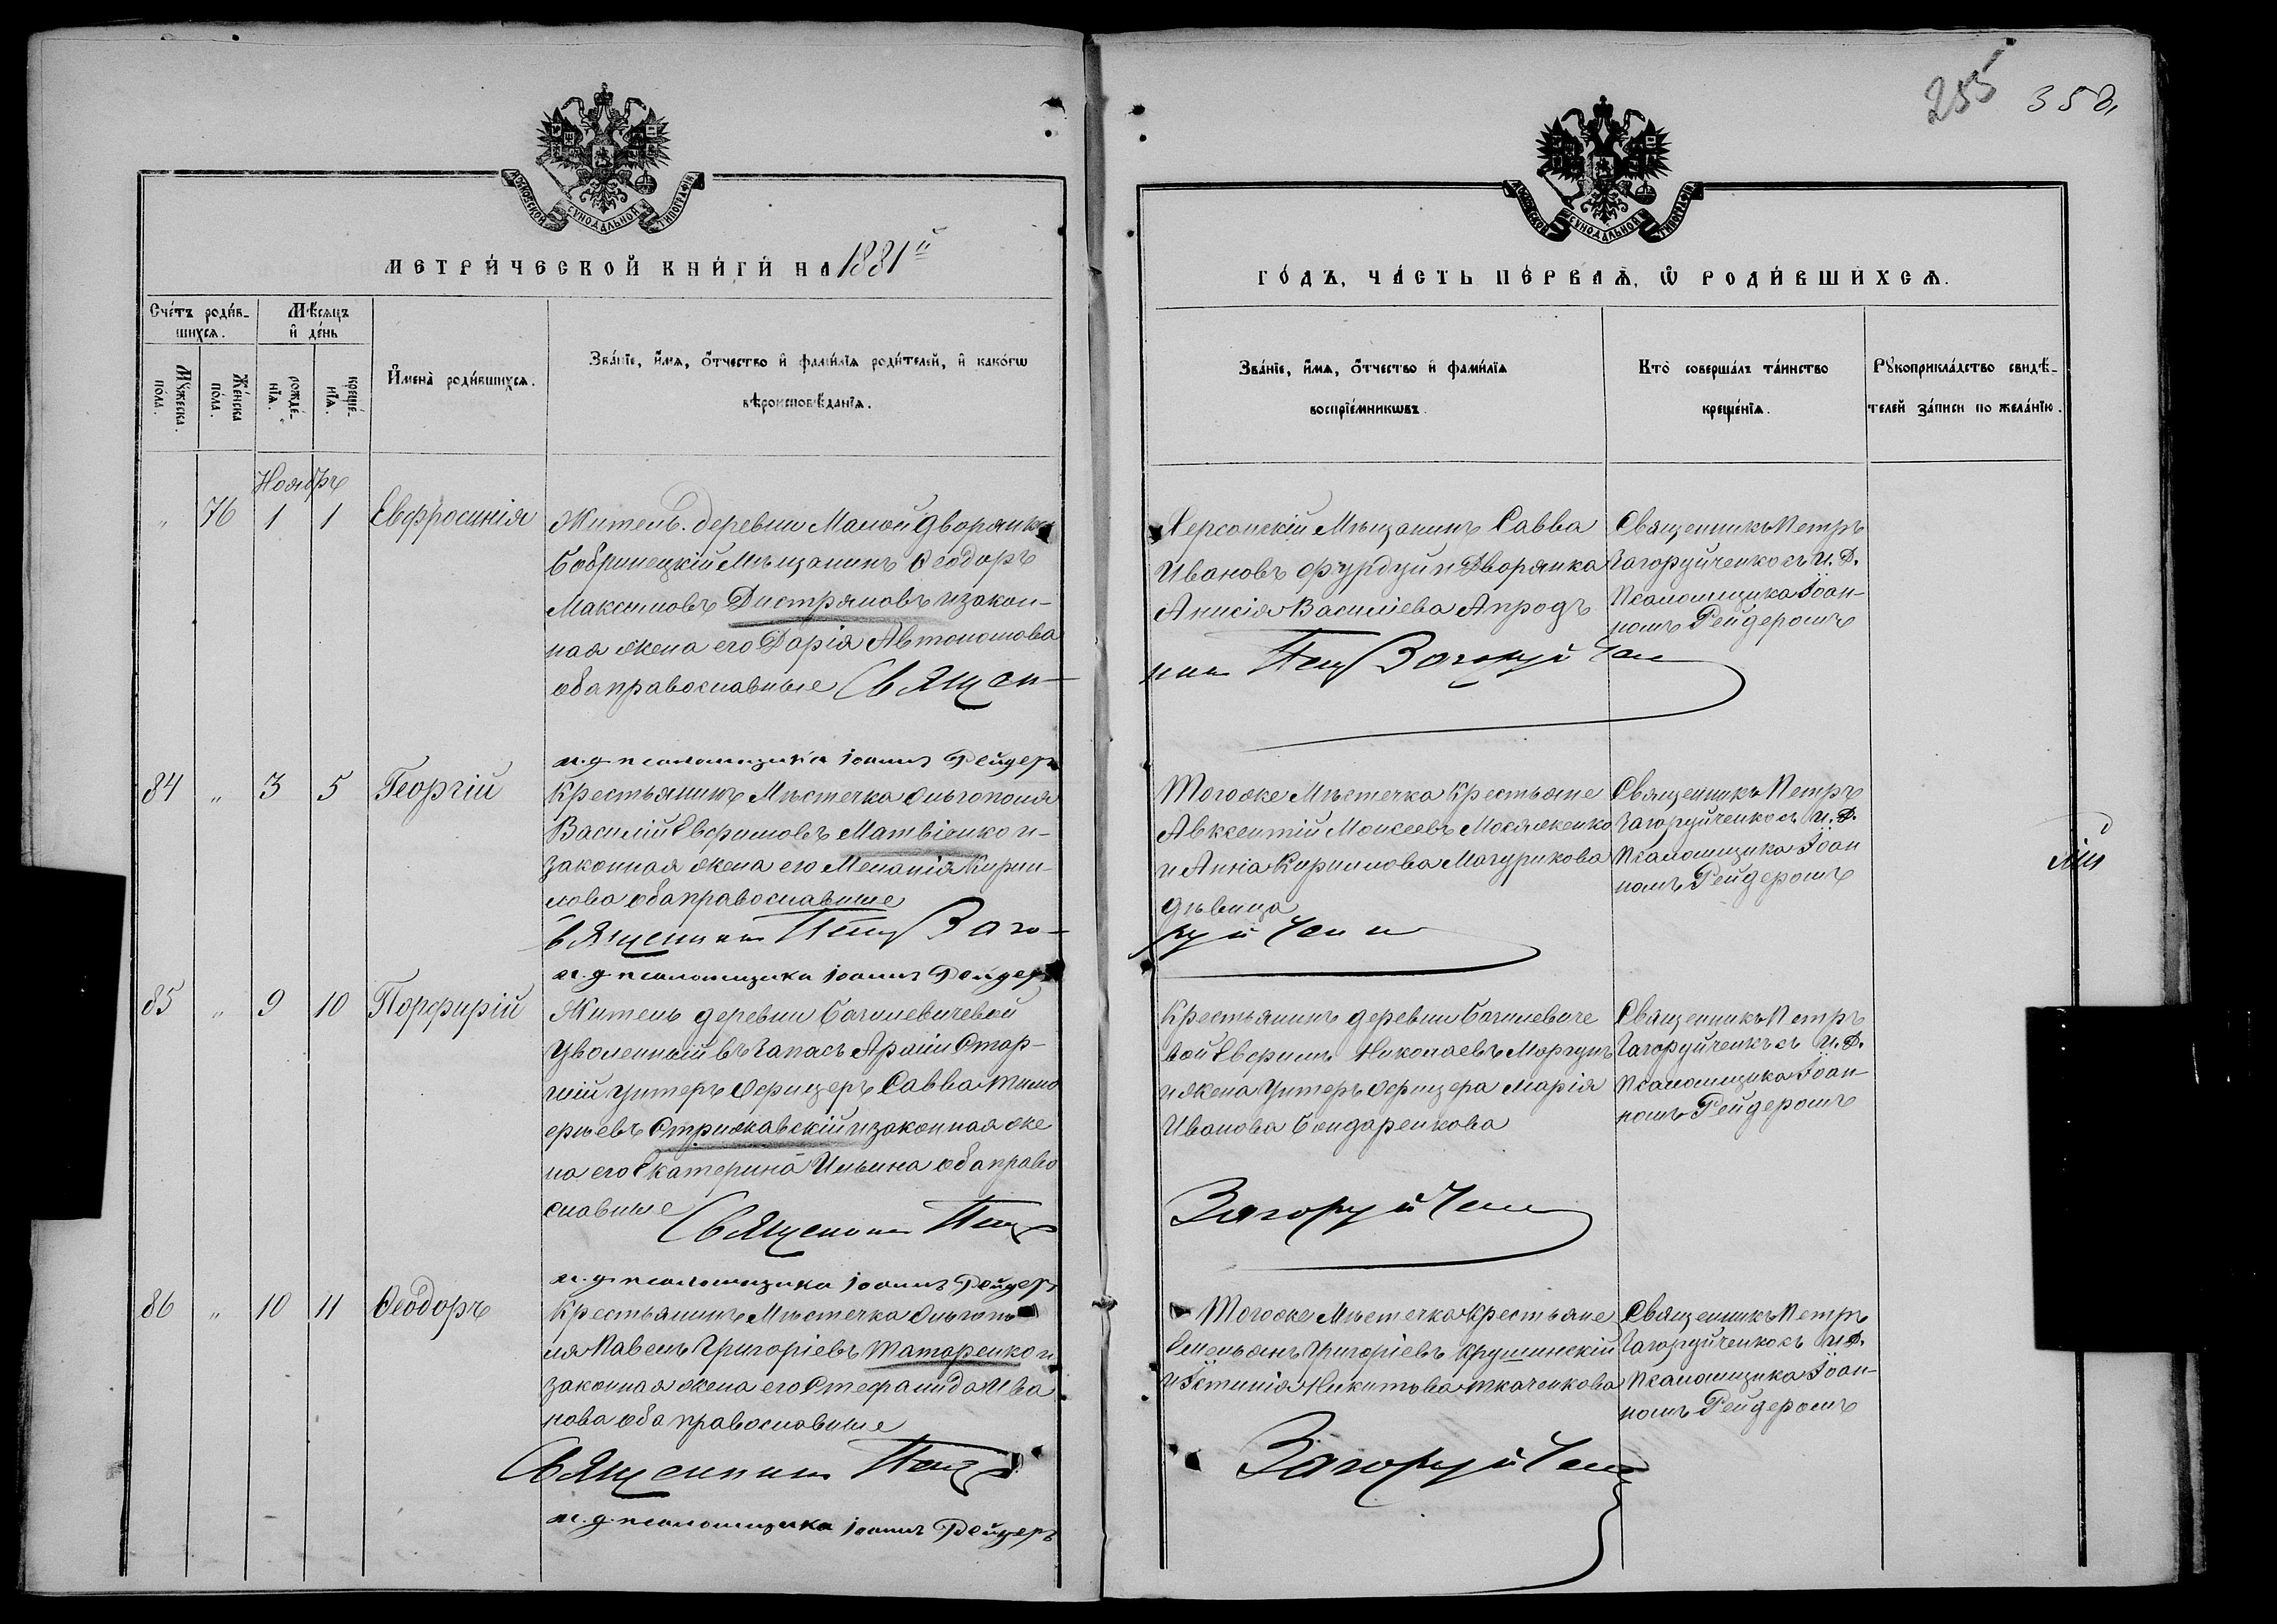 285 358
МОСКОВСКОЙ СѴНОДАЛЬНОЙ ТИПОГРАФІИ
МОСКОВСКОЙ СѴНОДАЛЬНОЙ ТИПОГРАФІИ
МЕТРИ́ЧЕСКОЙ КНИ́ГИ НА 1881й
ГО́ДЪ, ЧА́СТЬ ПЕ́РВАѦ, Ѿ РОДИ́ВШИХСѦ.
Сче́тъ роди́в-
шихсѧ.
Мѣ́сѧцъ
и҆ де́нь
Мꙋ́жеска по́ла.
Же́нска по́ла.
рожде́-нїѧ.
креще́-нїѧ.
И҆мена̀ роди́вшихсѧ.
Зва́нїе, и҆́мѧ, ѻ҆́тчество и҆ фами́лїѧ роди́телей, и҆ како́гѡ
вѣроисповѣ́данїѧ.
Зва́нїе, и҆́мѧ, ѻ҆́тчество и҆ фами́лїѧ
воспрїе́мникѡвъ.
Кто̀ соверша́лъ та́инство
креще́нїѧ.
Рꙋкоприкла́дство свидѣ́-
телей за́писи по жела́нїю.
Ноябрь
" 76 1 1 Евфросинія
Житель деревни Малой Дворянки
Бобринецкій Мѣщанинъ Ѳеодоръ
Максимовъ Дистряновъ и закон-
ная жена его Дарія Автономова
оба православные Священ-
и.д. псаломщика Іоаннъ Рейдеръ
Херсонскій Мѣщанинъ Савва
Ивановъ Фурдуй и Дворянка
Анисія Василіева Апродъ
никъ Петръ Загоруйченко
Священникъ Петръ
Загоруйченко съ И.Д.
Псаломщика Іоан-
номъ Рейдеромъ
84 " 3 5 Георгій
Крестьянинъ Мѣстечка Ольгополя
Василій Евфимовъ Матвіенко и-
законная жена его Меланія Кирил-
лова оба православные
Священникъ Петръ Заго-
и.д. псаломщика Іоаннъ Рейдеръ
Того же Мѣстечка Крестьяне
Авксентій Моисеевъ Мосяженко
и Анна Кириллова Магурикова
дѣвица
руйченко
Священникъ Петръ
Загоруйченко съ И.Д.
Псаломщика Іоан
номъ Рейдеромъ
85 " 9 10 Порфирій
Житель деревни Богилевичевой
Уволенный въ запасъ Арміи Стар-
шій Унтеръ Офицеръ Савва Тимо
ѳеевъ Стрижавскій и законная же
на его Екатерина Ильина оба право
славные
Священникъ Петръ
и.д. псаломщика Іоаннъ Рейдеръ
Крестьянинъ деревни Богилевиче
вой Евфимъ Николаевъ Моргунъ
и жена Унтеръ Офицера Марія
Иванова Бондаренкова
Загоруйченко
Священникъ Петръ
Загоруйченко съ И.Д.
Псаломщика Іоан-
номъ Рейдеромъ
86 " 10 11 Ѳеодоръ
Крестьянинъ Мѣстечка Ольгопо
ля Павелъ Григоріевъ Татаренко и
законная жена его Стефанида Ива
нова оба православные
Священникъ Петръ
и.д. псаломщика Іоаннъ Рейдеръ
Того же Мѣстечка Крестьяне
Емельянъ Григоріевъ Крушинскій
и Устинія Никитова Ткаченкова
Загоруйченко
Священникъ Петръ
Загоруйченко съ И.Д.
Псаломщика Іоан-
номъ Рейдеромъ